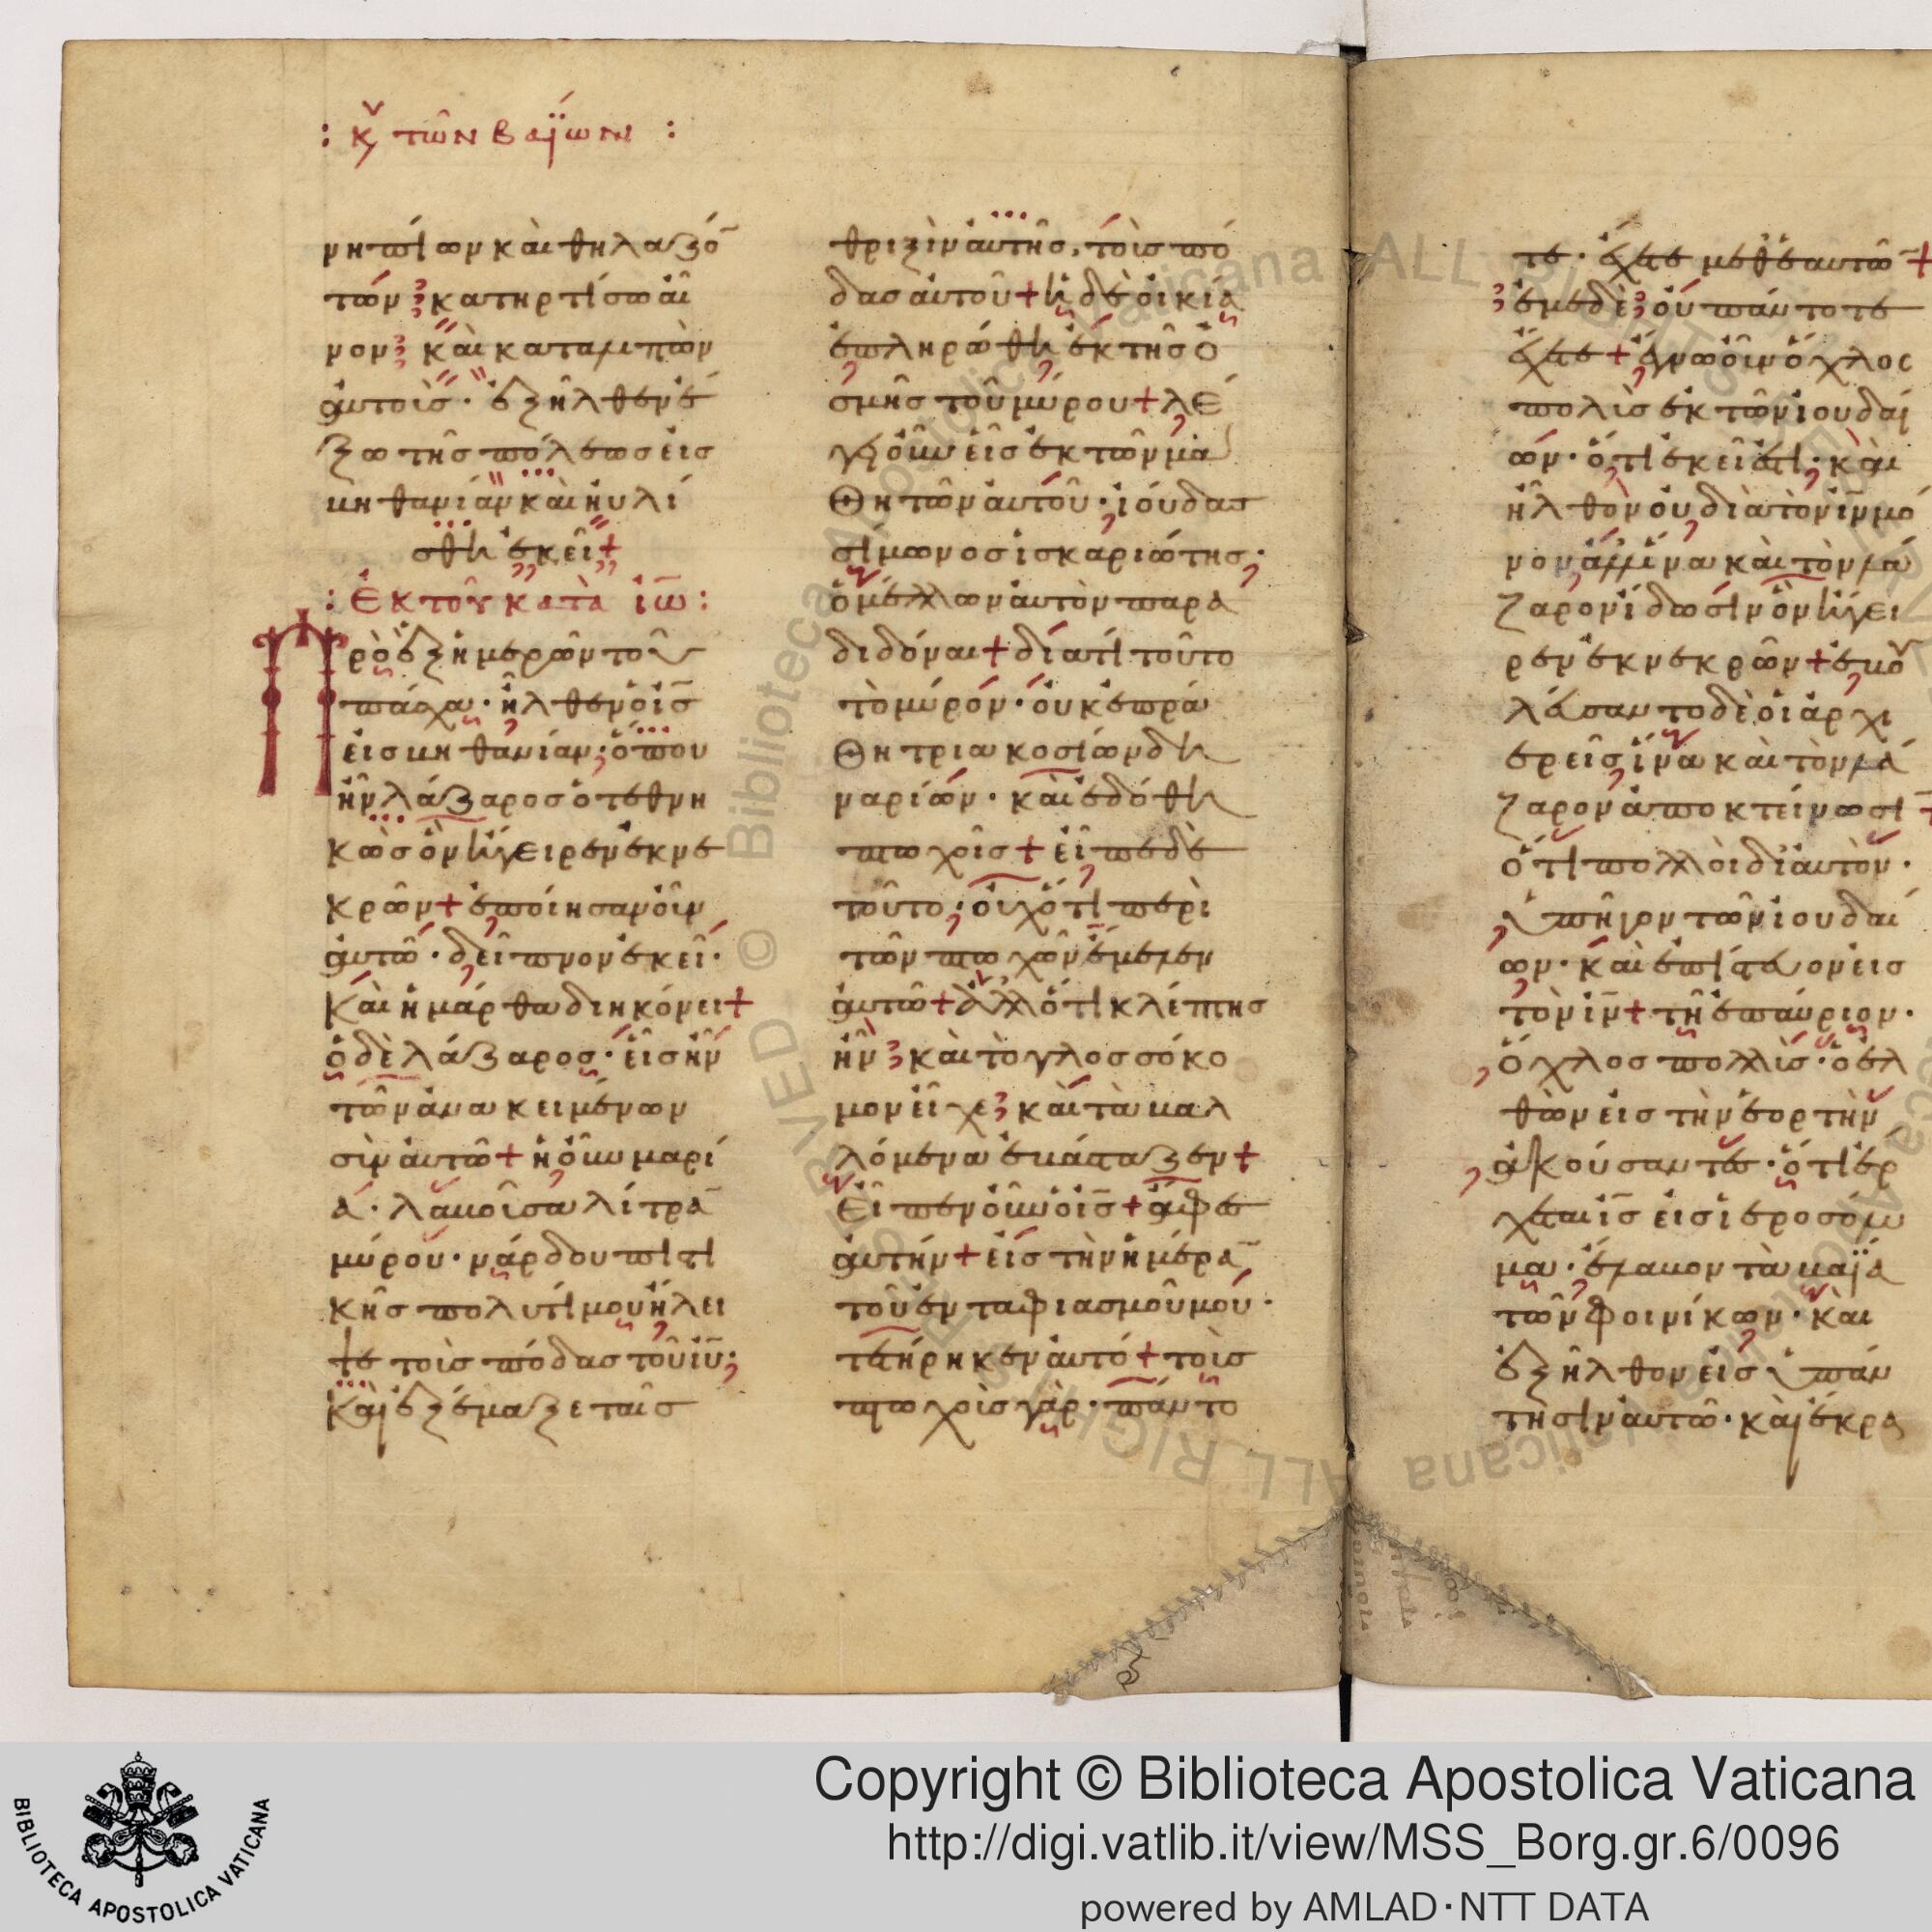 : κυ τῶν βαΐων :
νηπίων καὶ θηλαζό
των κατηρτίσω αἶ
νον καὶ καταλιπὼν
αυτοὶς· ἐξῆλθεν ἔ
ξω τῆς πόλεως εἰς
βηθανίαν καὶ ηὐλί
σθη ἐκεῖ +
: Ἐκ τοῦ κατὰ ἰω :
Πρὸ ἓξ ἡμερῶν τοῦ
πάσχα· ἦλθεν ὁ ις
εἰς βηθανίαν· ὅπου
ἦν λάζαρος ὁ τεθνη
κὼς ὃν ἤγειρεν ἐκ νε
κρῶν + ἐποίησαν οῖν
αὐτῶ· δεῖπνον ἐκεῖ·
Καὶ ἡ μάρθα διηκόνει +
ὁ δὲ λάζαρος· εἷς ἦν
τῶν ἀνακειμένων
σὶν αὐτῶ + ἡ οὖν μαρί
α· λαβοῖσα λίτρα
μύρου· νάρδου πιστι
κῆς πολυτίμου ἤλει
ψε τοὶς πόδας τοῦ ιυ·
καὶ ἐξέμαξε ταῖς
θριξὶν αὐτῆς, τοὶς πό
δας αὐτοῦ + ἡ δὲ οἰκία
ἐπληρώθη ἐκ τῆς ὀ
σμῆς τοῦ μύρου + λέ
γει οὖν εἷς ἐκ τῶν μα
θητῶν αὐτοῦ· ἰούδας
σίμωνος ἰσκαριώτης·
ὁ μέλλων αὐτὸν παρα
διδόναι + διατί τοῦτο
τὸ μύρον· οὐκ ἐπρά
θη τριακοσίων δη
ναρίων· καὶ ἐδόθη
πτωχοῖς + εἶπε δὲ
τοῦτο· οὐχ ὅτι περὶ
τῶν πτωχῶν ἔμελεν
αὐτῶ + ἀλλ ὅτι κλέπτης
ἦν καὶ τὸ γλοσσόκο
μον εἶχε καὶ τὰ βαλ
λόμενα ἐβάσταζεν +
Εἶπεν οὖν ὁ ις + ἄφες
αὐτήν + εἰς τὴν ἡμέρα
τοῦ ἐνταφιασμοῦ μου·
τετήρηκεν αὐτό + τοὶς
πτωχοὶς γὰρ· πάντο
τε· ἔχετε μεθ ἑαυτῶ +
ἐμὲ δὲ οὐ πάντοτε
ἔχετε + ἔγνω οἶν ὄχλος
πολὶς ἐκ τῶν ἰουδαί
ων· ὅτι ἐκεῖ ἐστι· καὶ
ἦλθον οὐ διὰ τὸν ιν μό
νον ἀλλ ἵνα καὶ τὸν λά
ζαρον ἴδωσιν ὃν ἤγει
ρεν ἐκ νεκρῶν + ἐβου
λεύσαντο δὲ οἱ ἀρχι
ερεῖς ἵνα καὶ τὸν λά
ζαρον ἀποκτείνωσι +
ὅτι πολλοὶ δι αὐτὸν·
ὑπῆγον τῶν ἰουδαί
ων· καὶ ἐπίστευον εἰς
τὸν ιν + τῆ ἐπαύριον·
ὄχλος πολλὶς· ὁ ἐλ
θὼν εἰς τὴν ἑορτὴν
ἀκούσαντες· ὅτι ἔρ
χεται ις εἰς ἱεροσόλυ
μα· ἔλαβον τὰ βαΐα
τῶν φοινίκων· καὶ
ἐξῆλθον εἰς ὑπάν
τησιν αὐτῶ· καὶ ἔκρα
Copyright © Biblioteca Apostolica Vaticana
http://digi.vatlib.it/view/MSS_Borg.gr.6/0096
powered by AMLAD·NTT DATA
BIBLIOTECA APOSTOLICA VATICANA